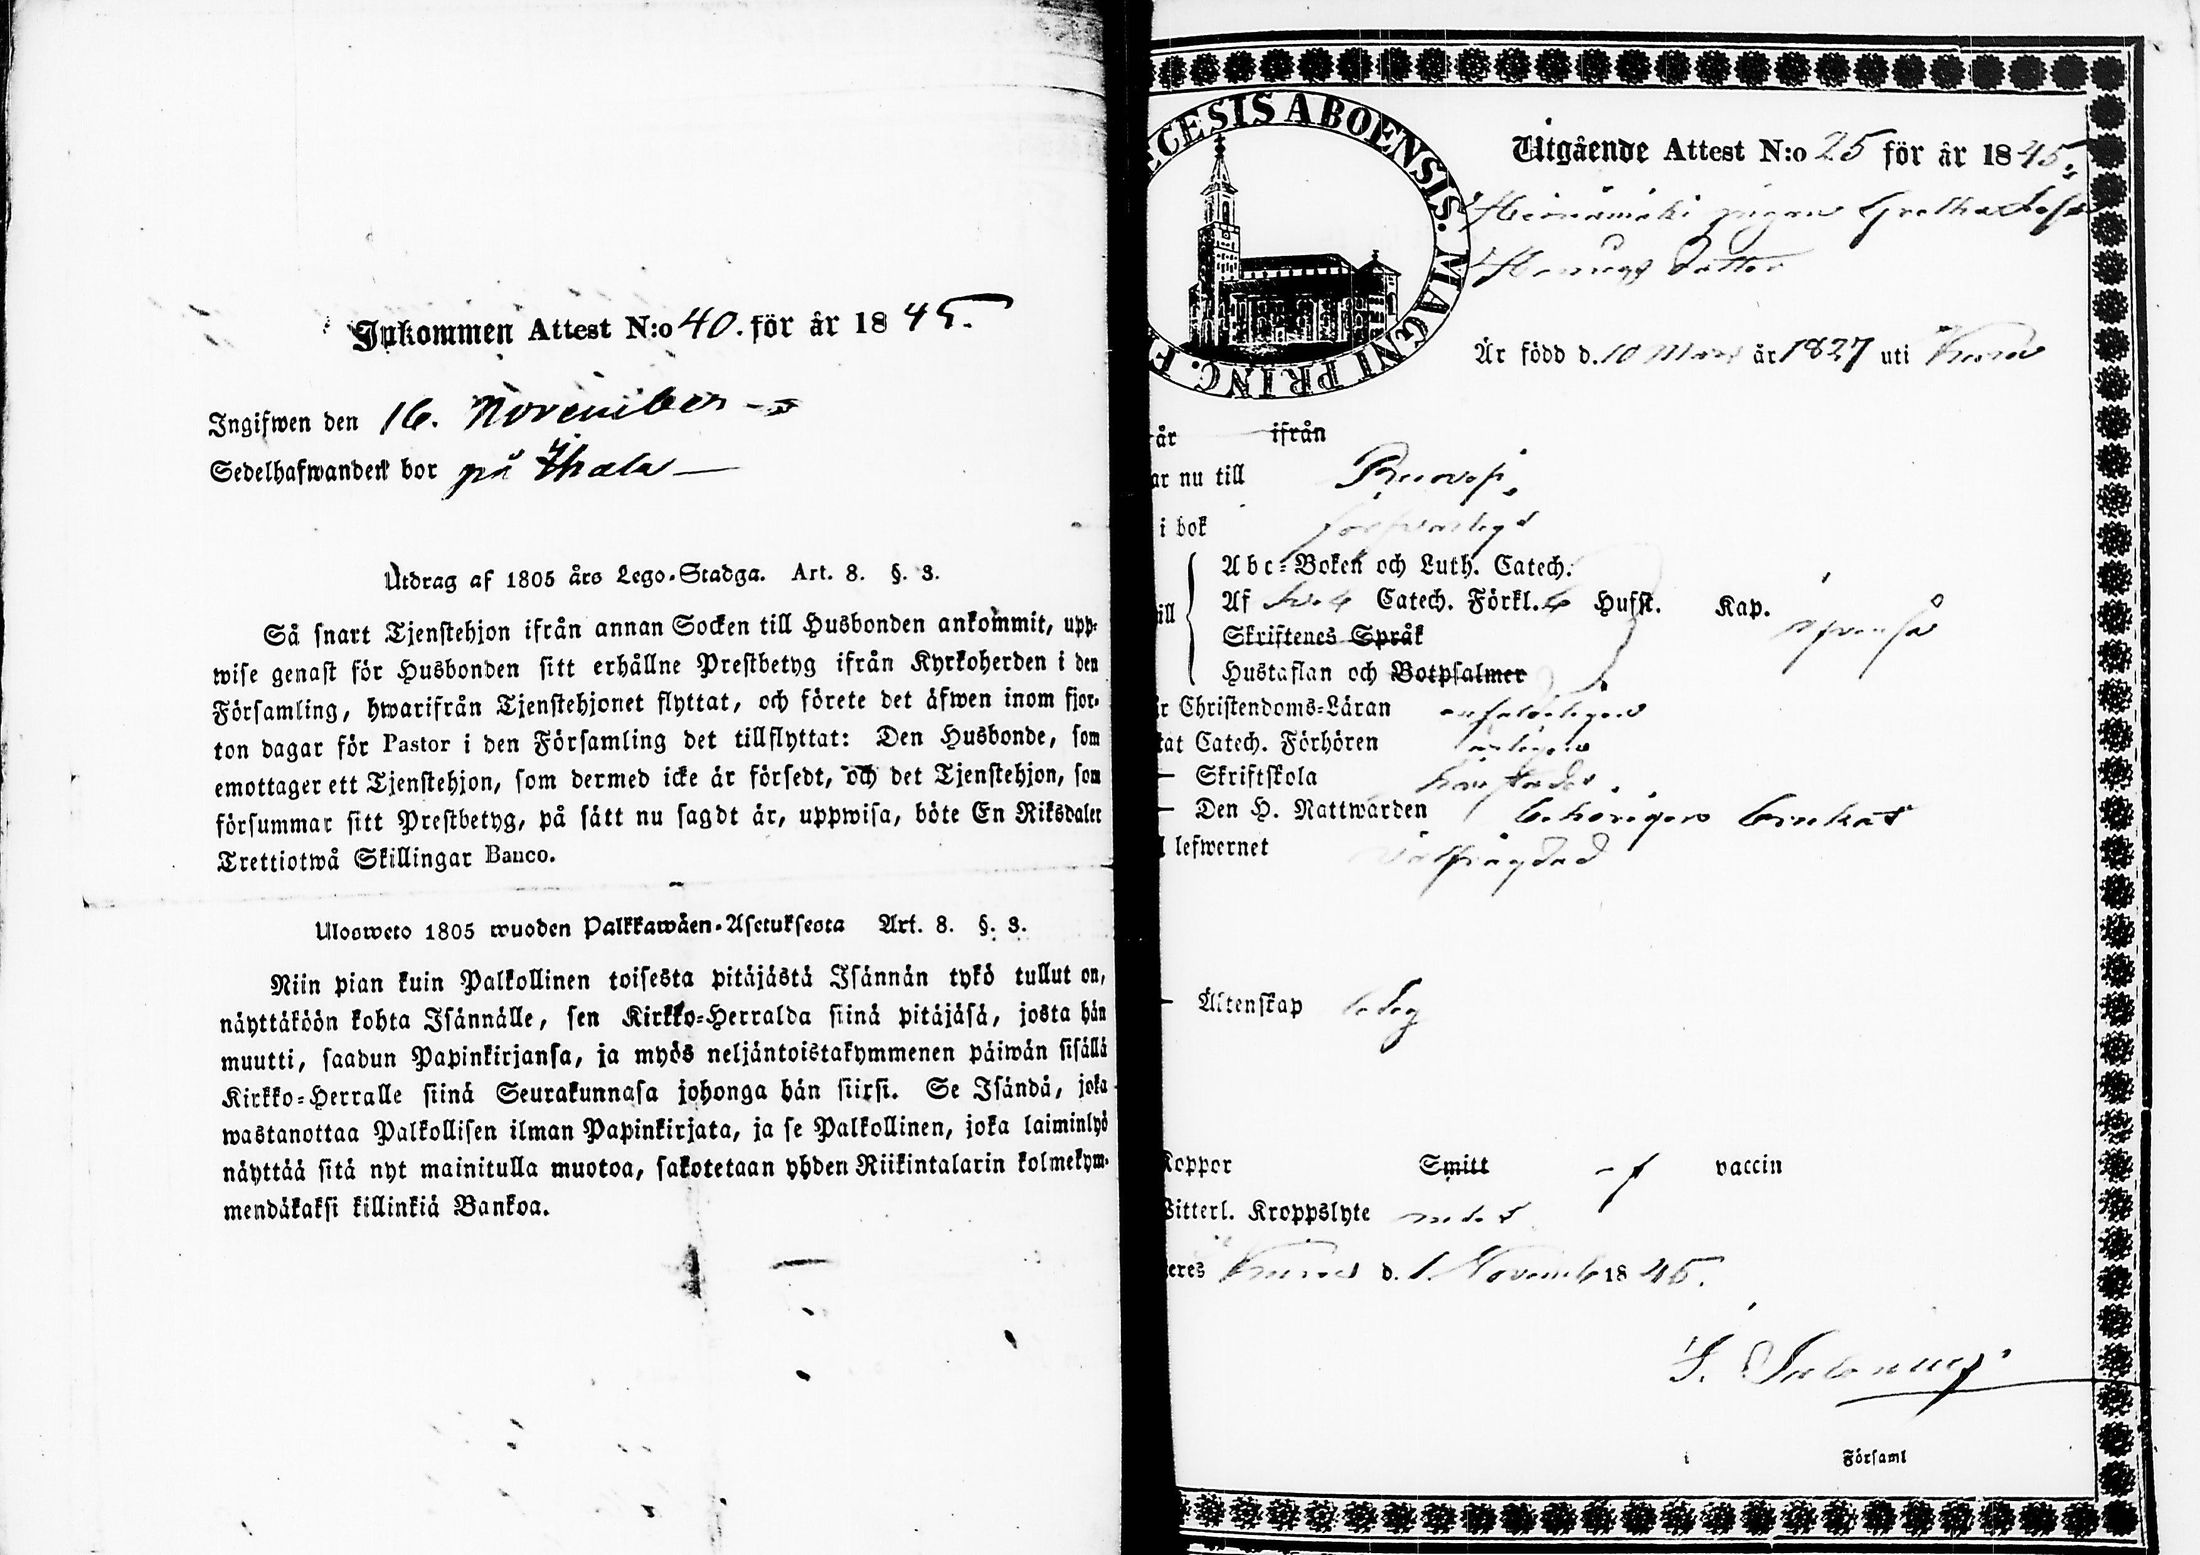 Inkommen Attest N:o 40. för år 1845.
Ingifwen den 16. November
Sedelhafwanden bor på
Utdrag af 1805 års Lego-Stadga. Art. 8. §. 3.
Så snart Tjenstehjon ifrån annan Socken till Husbonden ankommit, upp-
wise genast för Husbonden sitt erhållne Prestbetyg ifrån Kyrkoherden i den
Församling, hwarifrån Tjenstehjonet flyttat, och förete det äfwen inom fjor-
ton dagar för Pastor i den Församling det tillflyttat: Den Husbonde, som
emottager ett Tjenstehjon, som dermed icke är försedt, och det Tjenstehjon, som
försummar sitt Prestbetyg, på sätt nu sagdt är, uppwisa, böte En Riksdaler
Trettiotwå Skillingar Banco.
Ulosweto 1805 wuoden Palkkawäen-Asetuksesta Art. 8. §. 3.
Niin pian kuin Palkollinen toisesta pitäjästä Isännän tykö tullut on,
näyttäköön kohta Isännälle, sen Kirkko-Herralda siinä pitäjäsä, josta hän
muutti, saadun Papinkirjansa, ja myös neljäntoistakymmenen päiwän sisällä
Kirkko-Herralle siinä Seurakunnasa johonga hän siirsi. Se Isändä, joka
wastanottaa Palkollisen ilman Papinkirjata, ja se Palkollinen, joka laiminlyö
näyttää sitä nyt mainitulla muotoa, sakotetaan yhden Riikintalarin kolmekym-
mendäkaksi killinkiä Bankoa.
ECESIS ABOENSIS. MAGNI PRINC. F
Utgående Attest N:o 25 för år 1845.
Heinämäki pigan Gretha
Är född d. 10 Mars år 1827 uti
år ifrån
ar nu till Ruovesi,
i bok försvarligt
Abc-Boken och Luth. Catech.
ill Af Catech. Förkl. Husft. Kap.
Skriftenes Språk
Hustaflan och Botpsalmer
r Christendoms-Läran
tat Catech. Förhören
— Skriftskola
— Den H. Nattwarden behörigen brukat
l lefwernet välfrägdad
— Äktenskap ledig
Koppor Smitt vaccin
Witterl. Kroppslyte
eres d. 1 Novemb 1845.
Församl